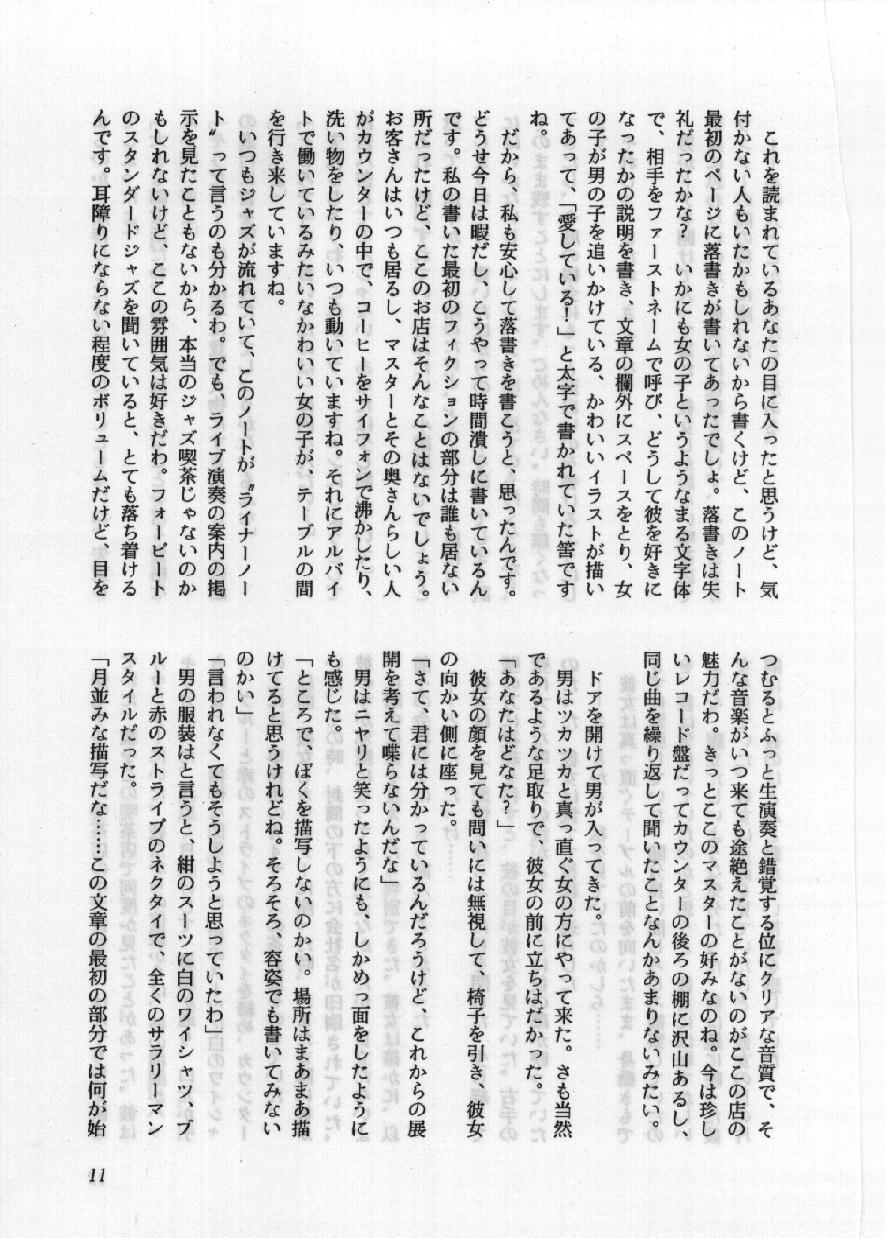 これを読まれているあなたの目に入ったと思うけど、気
付かない人もいたかもしれないから書くけど、このノート
最初のページに落書きが書いてあったでしょ。落書きは失
礼だったかな？　いかにも女の子というようなまる文字体
で、相手をファーストネームで呼び、どうして彼を好きに
なったかの説明を書き、文章の欄外にスペースをとり、女
の子が男の子を追いかけている、かわいいイラストが描い
てあって、「愛している！」と太字で書かれていた筈です
ね。
だから、私も安心して落書きを書こうと、思ったんです。
どうせ今日は暇だし、こうやって時間潰しに書いているん
です。私の書いた最初のフィクションの部分は誰も居ない
所だったけど、ここのお店はそんなことはないでしょう。
お客さんはいつも居るし、マスターとその奥さんらしい人
がカウンターの中で、コーヒーをサイフォンで沸かしたり、
洗い物をしたり、いつも動いていますね。それにアルバイ
トで働いているみたいなかわいい女の子が、テーブルの間
を行き来していますね。
いつもジャズが流れていて、このノートが〝ライナーノー
ト〟って言うのも分かるわ。でも、ライブ演奏の案内の掲
示を見たこともないから、本当のジャズ喫茶じゃないのか
もしれないけど、ここの雰囲気は好きだわ。フォービート
のスタンダードジャズを聞いていると、とても落ち着ける
んです。耳障りにならない程度のボリュームだけど、目を
つむるとふっと生演奏と錯覚する位にクリアな音質で、そ
んな音楽がいつ来ても途絶えたことがないのがここの店の
魅力だわ。きっとここのマスターの好みなのね。今は珍し
いレコード盤だってカウンターの後ろの棚に沢山あるし、
同じ曲を繰り返して聞いたことなんかあまりないみたい。
ドアを開けて男が入ってきた。
男はツカツカと真っ直ぐ女の方にやって来た。さも当然
であるような足取りで、彼女の前に立ちはだかった。
「あなたはどなた？」
彼女の顔を見ても問いには無視して、椅子を引き、彼女
の向かい側に座った。
「さて、君には分かっているんだろうけど、これからの展
開を考えて喋らないんだな」
男はニヤリと笑ったようにも、しかめっ面をしたように
も感じた。
「ところで、ぼくを描写しないのかい。場所はまあまあ描
けてると思うけれどね。そろそろ、容姿でも書いてみない
のかい」
「言われなくてもそうしようと思っていたわ」
男の服装はと言うと、紺のスーツに白のワイシャツ、ブ
ルーと赤のストライプのネクタイで、全くのサラリーマン
スタイルだった。
「月並みな描写だな……この文章の最初の部分では何が始
11